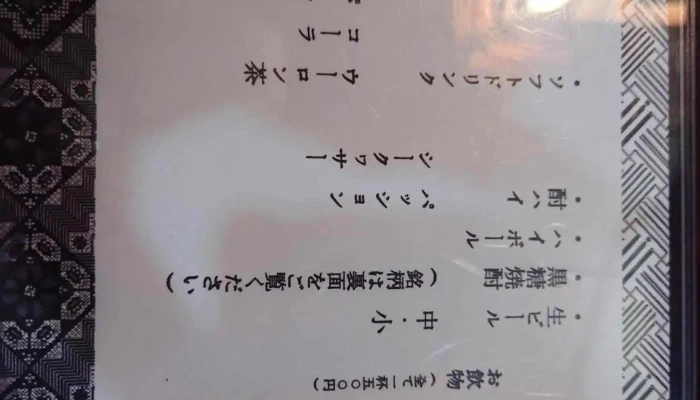 お飲物 （全て一杯五〇〇円）
・生ビール 中・小
・黒糖焼酎 （銘柄は裏面をご覧ください）
・ハイボール
・酎ハイ パッション
シークヮサー
・ソフトドリンク ウーロン茶
コーラ